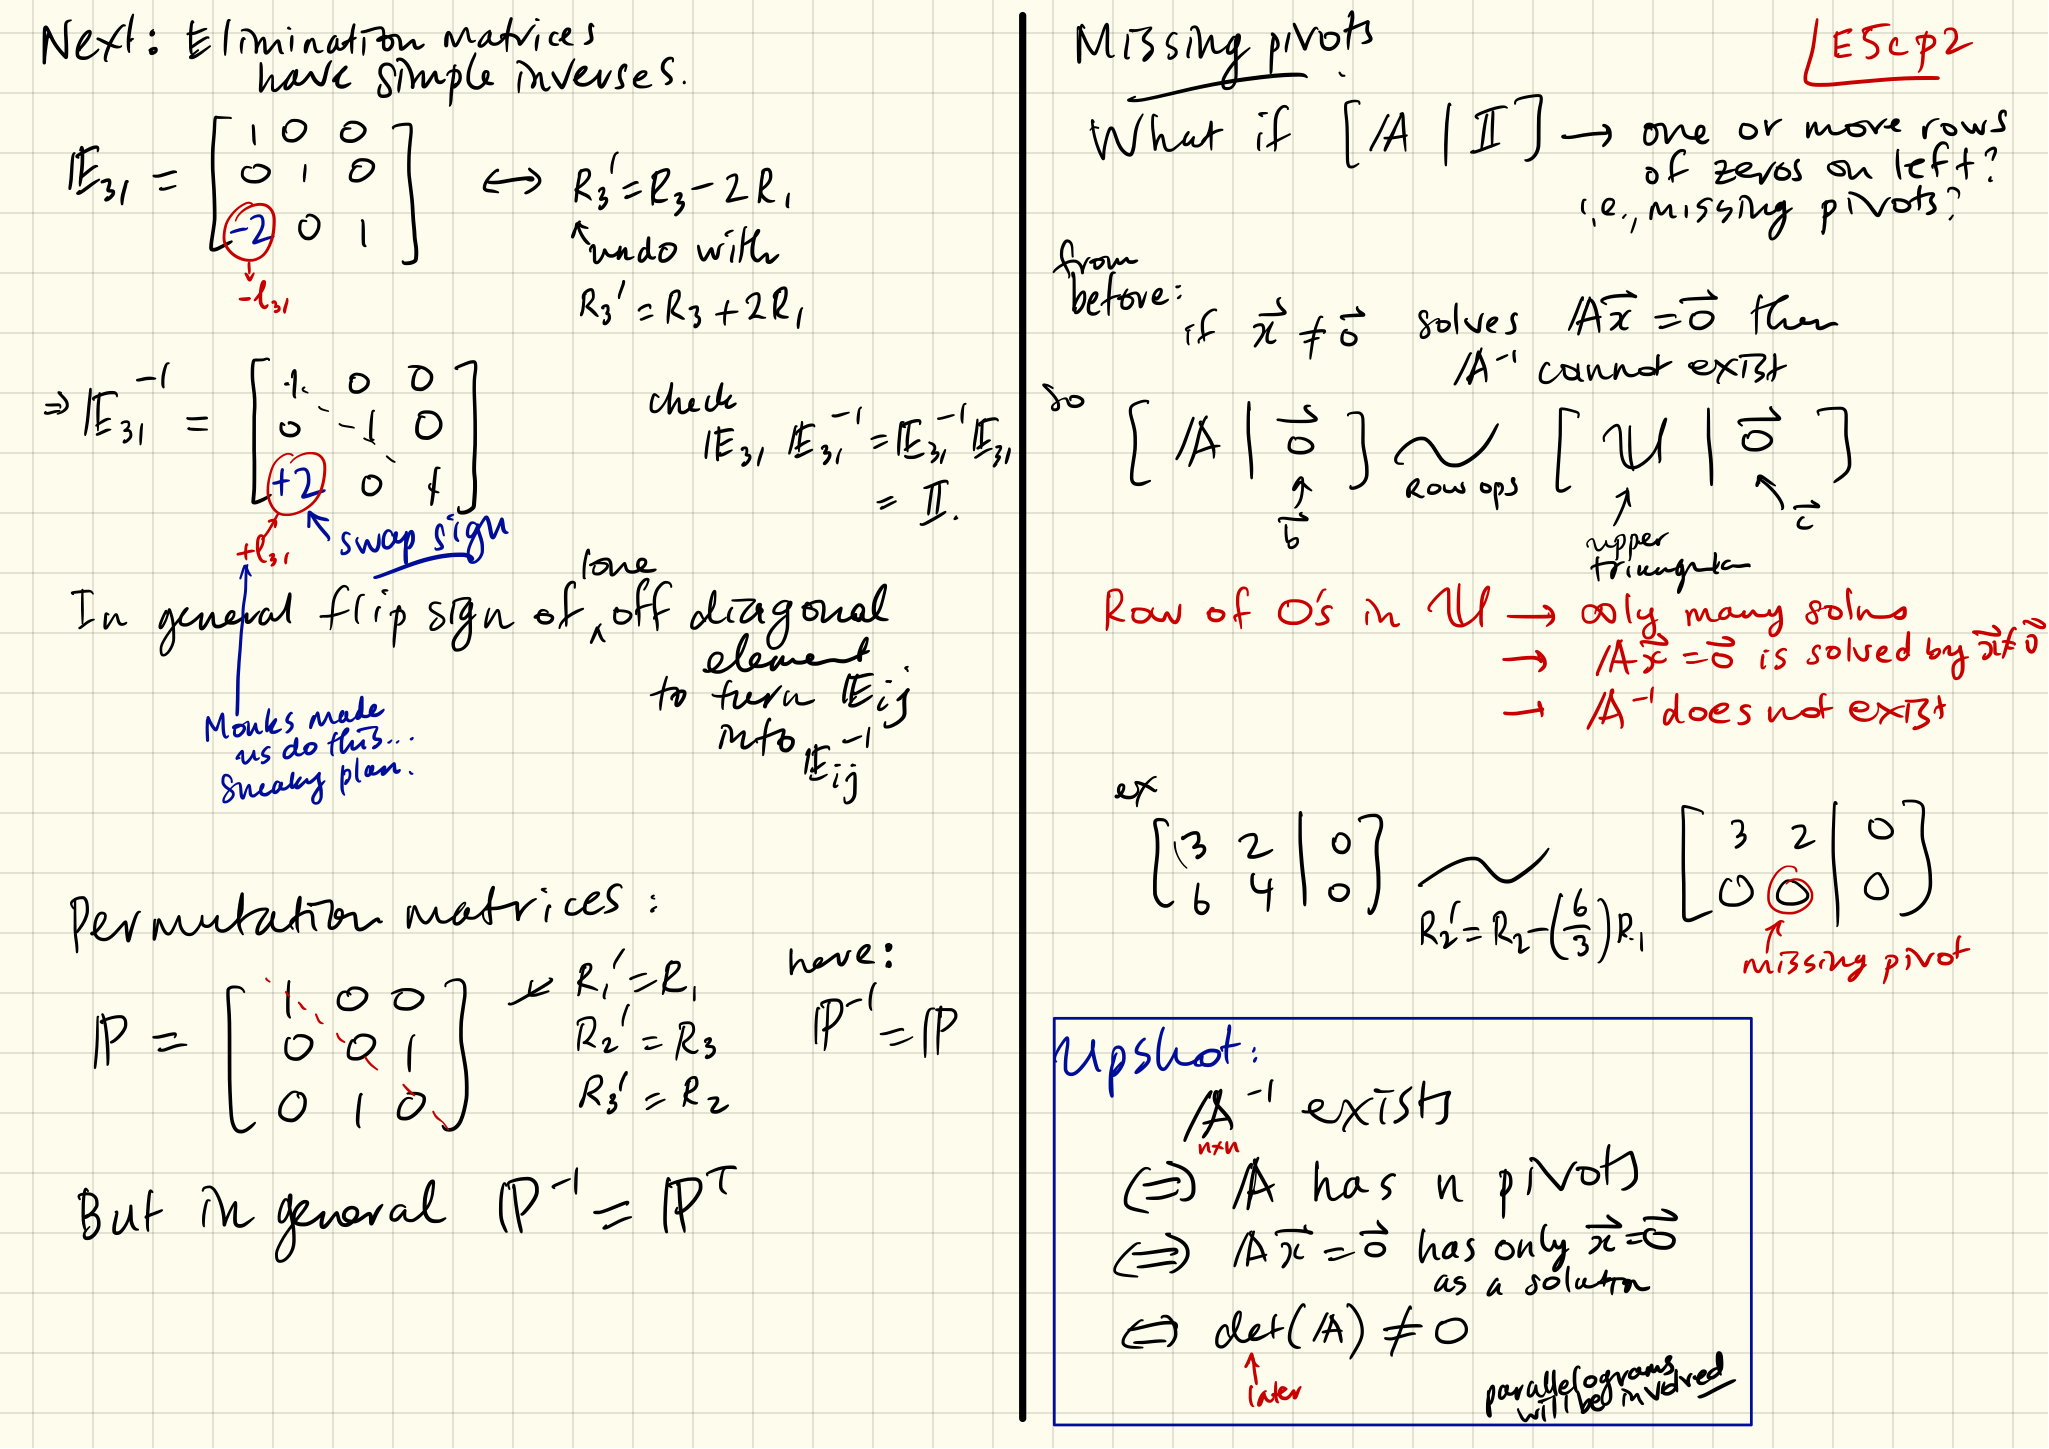 Next: Elimination matrices
have simple inverses.
𝔼₃₁ = [ 1 0 0
0 1 0
-2 0 1 ] ↔ R₃' = R₃ - 2R₁
-l₃₁
undo with
R₃' = R₃ + 2R₁
⇒ 𝔼₃₁⁻¹ = [ 1 0 0
0 1 0
+2 0 1 ]
+l₃₁
swap sign
check
𝔼₃₁ 𝔼₃₁⁻¹ = 𝔼₃₁⁻¹ 𝔼₃₁
= 𝕀.
In general flip sign of ^ lone off diagonal
element
to turn 𝔼ᵢⱼ
into 𝔼ᵢⱼ⁻¹
Monks made
us do this...
Sneaky plan.
Permutation matrices:
ℙ = [ 1 0 0
0 0 1
0 1 0 ]
R₁' = R₁
R₂' = R₃
R₃' = R₂
here:
ℙ⁻¹ = ℙ
But in general ℙ⁻¹ = ℙᵀ
Missing pivots
E5cp2
What if [𝔸 | 𝕀] → one or more rows
of zeros on left?
i.e., missing pivots?
from
before:
if x⃗ ≠ 0⃗ solves 𝔸x⃗ = 0⃗ then
𝔸⁻¹ cannot exist
so
[ 𝔸 | 0⃗ ] ~ [ 𝕌 | 0⃗ ]
row ops
b⃗
upper
triangular
c⃗
Row of 0's in 𝕌 → ∞ly many solns
→ 𝔸x⃗ = 0⃗ is solved by x⃗ ≠ 0⃗
→ 𝔸⁻¹ does not exist
ex
[ 3 2 | 0
6 4 | 0 ] ~ [ 3 2 | 0
0 0 | 0 ]
R₂' = R₂ - (6/3) R₁
missing pivot
Upshot:
𝔸⁻¹ exists
n×n
⇔ 𝔸 has n pivots
⇔ 𝔸x⃗ = 0⃗ has only x⃗ = 0⃗
as a solution
⇔ det(𝔸) ≠ 0
later
parallelograms
will be involved